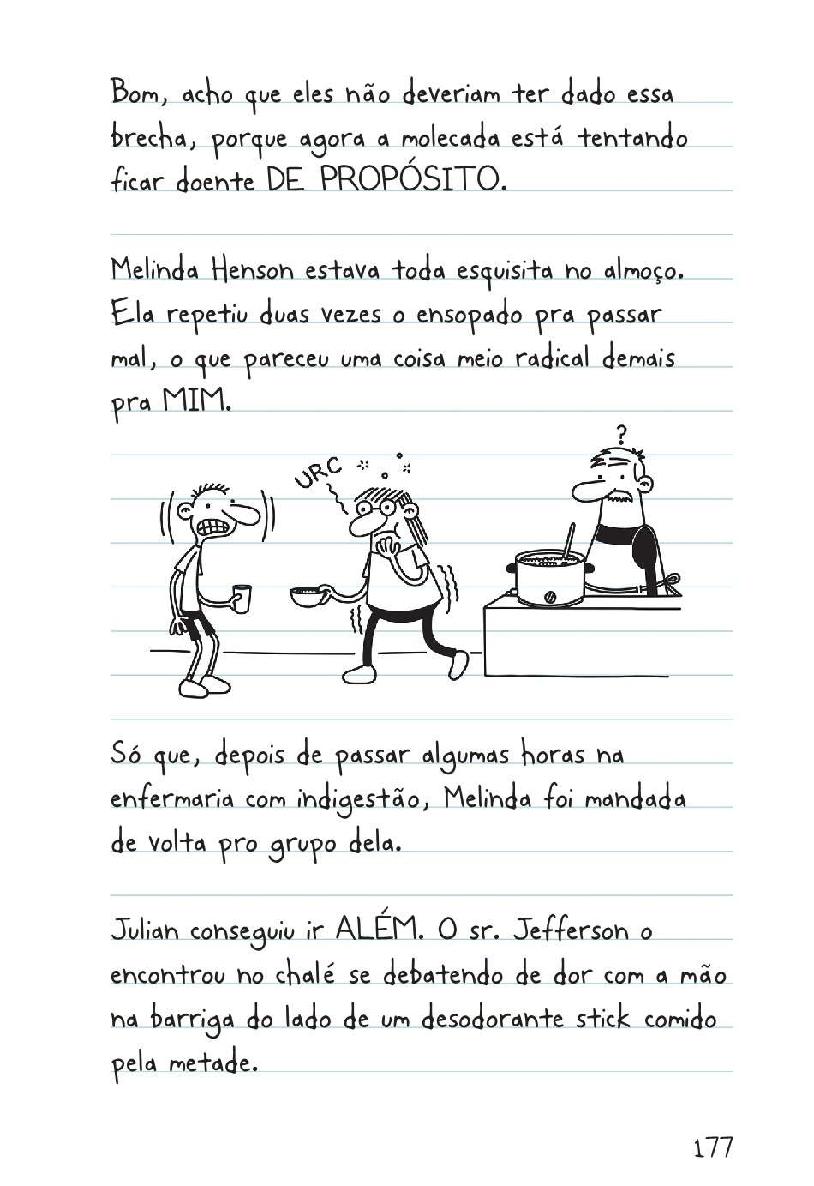 Bom, acho que eles não deveriam ter dado essa
brecha, porque agora a molecada está tentando
ficar doente DE PROPÓSITO.
Melinda Henson estava toda esquisita no almoço.
Ela repetiu duas vezes o ensopado pra passar
mal, o que pareceu uma coisa meio radical demais
pra MIM.
?
URC
Só que, depois de passar algumas horas na
enfermaria com indigestão, Melinda foi mandada
de volta pro grupo dela.
Julian conseguiu ir ALÉM. O sr. Jefferson o
encontrou no chalé se debatendo de dor com a mão
na barriga do lado de um desodorante stick comido
pela metade.
177